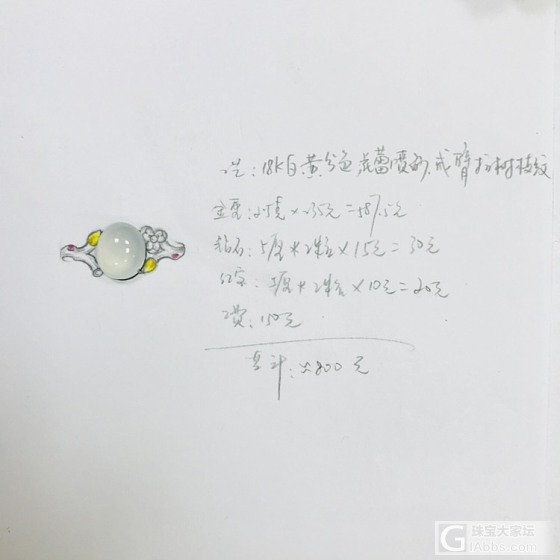 工艺:18K白黄分色,花蕾喷砂,戒臂拉树枝纹
金重:2.5克×235元=587.5元
钻石:5厘*2粒×15元=30元
红宝:5厘*2粒×10元=20元
工费:150元
合计:≈800元
珠宝大家坛
GIAbbs.com